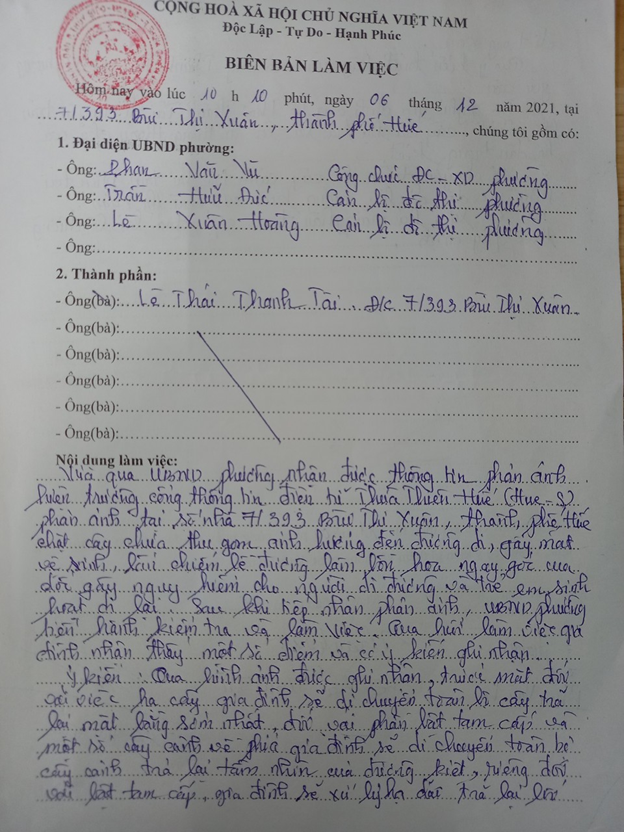 CỘNG HOÀ XÃ HỘI CHỦ NGHĨA VIỆT NAM
Độc Lập - Tự Do - Hạnh Phúc
BIÊN BẢN LÀM VIỆC
Hôm nay vào lúc 10 h 10 phút, ngày 06 tháng 12 năm 2021, tại
7/393 Bùi Thị Xuân, thành phố Huế, chúng tôi gồm có:
1. Đại diện UBND phường:
- Ông: Phan Văn Vũ Công chức ĐC-XD phường
- Ông: Trần Hữu Đức Cán bộ đô thị phường
- Ông: Lê Xuân Hoàng Cán bộ đô thị phường
- Ông:
2. Thành phần:
- Ông(bà): Lê Thái Thanh Tài. Đ/C 7/393 Bùi Thị Xuân
- Ông(bà):
- Ông(bà):
- Ông(bà):
- Ông(bà):
- Ông(bà):
Nội dung làm việc:
Vừa qua UBND phường nhận được thông tin phản ánh
hiện trường cổng thông tin điện tử Thừa Thiên Huế (Hue-S)
phản ánh tại số nhà 7/393 Bùi Thị Xuân, thành phố Huế
chặt cây chưa thu gom ảnh hưởng đến đường đi, gây mất
vệ sinh, lấn chiếm lề đường làm bồn hoa ngay góc cua
dốc gây nguy hiểm cho người đi đường và trẻ em sinh
hoạt đi lại. Sau khi tiếp nhận phản ánh, UBND phường
tiến hành kiểm tra và làm việc. Qua buổi làm việc gia
đình nhận thấy một số điểm và có ý kiến ghi nhận.
Ý kiến: Qua hình ảnh được ghi nhận, trước mắt đối
với việc hạ cây gia đình sẽ di chuyển toàn bộ cây trả
lại mặt bằng sớm nhất, đối với phần bậc tam cấp và
một số cây cảnh về phía gia đình sẽ di chuyển toàn bộ
cây cảnh trả lại tầm nhìn của đường kiệt, riêng đối
với bậc tam cấp, gia đình sẽ xử lý hạ dốc trả lại